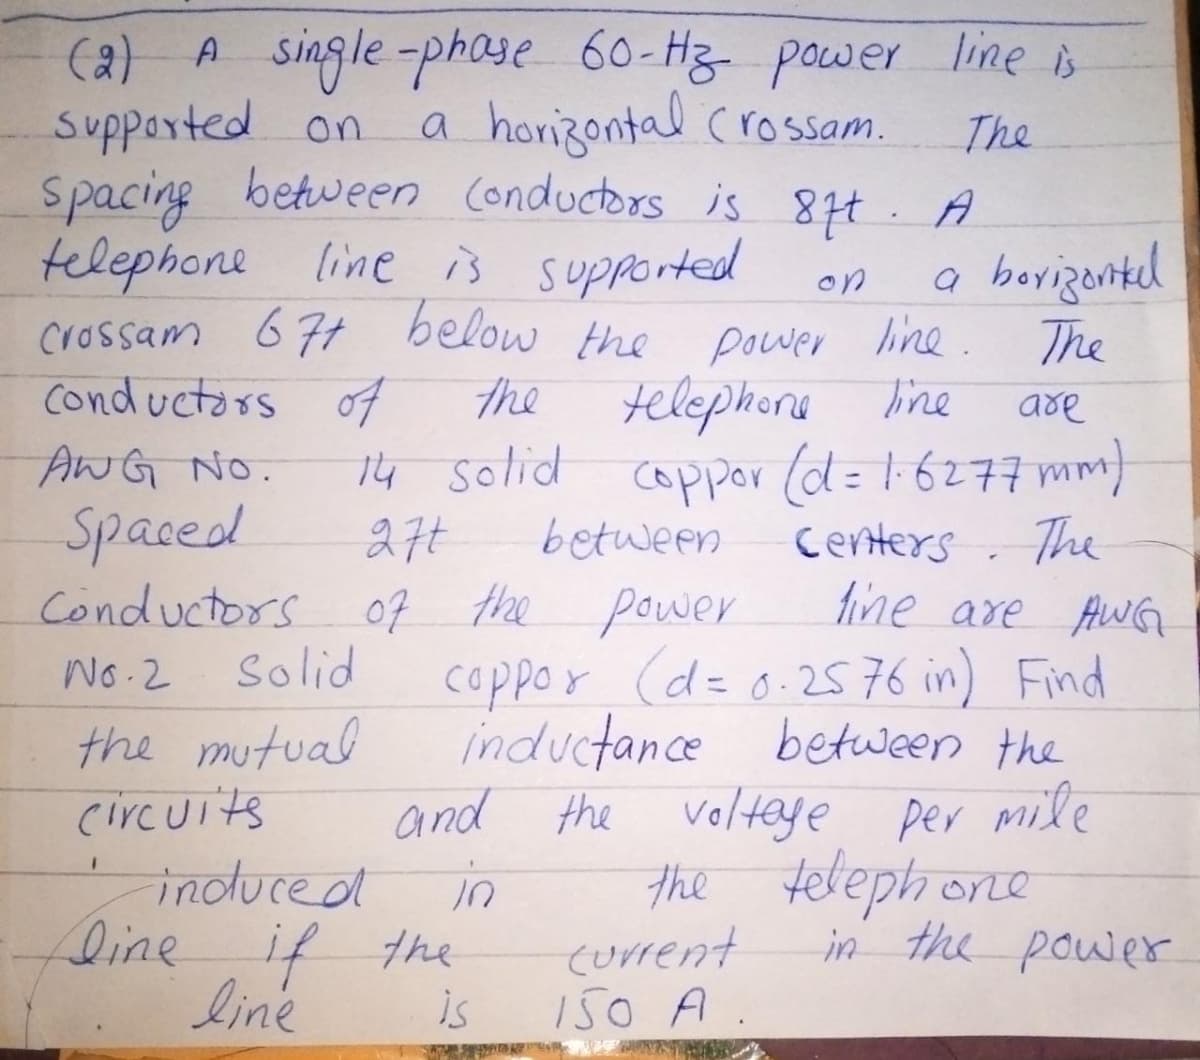 (2) A single-phase 60-Hz power line is
supported on a horizontal crossam. The
spacing between conductors is 8ft. A
telephone line is supported on a horizontal
crossam 6ft below the power line. The
conductors of the telephone line are
AWG NO. 14 solid coppor (d = 1.6277 mm)
spaced 2ft between centers. The
conductors of the power line are AWG
No.2 solid coppor (d = 0.2576 in) Find
the mutual inductance between the
circuits and the voltage per mile
induced in the telephone
line if the current in the power
line is 150 A.